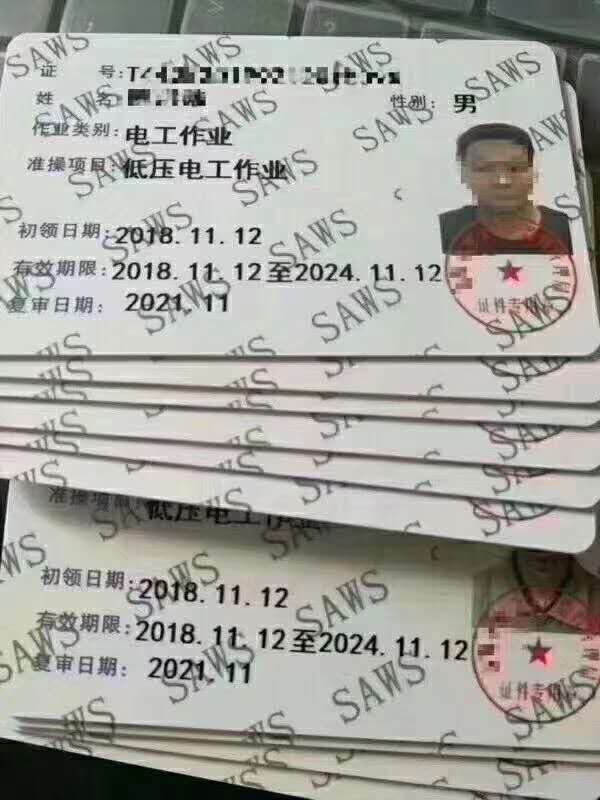 SAWS
证 号:T
姓 名:
性别: 男
作业类别: 电工作业
准操项目: 低压电工作业
初领日期: 2018. 11. 12
有效期限: 2018. 11. 12至2024. 11. 12
复审日期: 2021. 11
证件专用章
准操项目: 低压电工作业
初领日期: 2018. 11. 12
有效期限: 2018. 11. 12至2024. 11. 12
复审日期: 2021. 11
证件专用章
SAWS